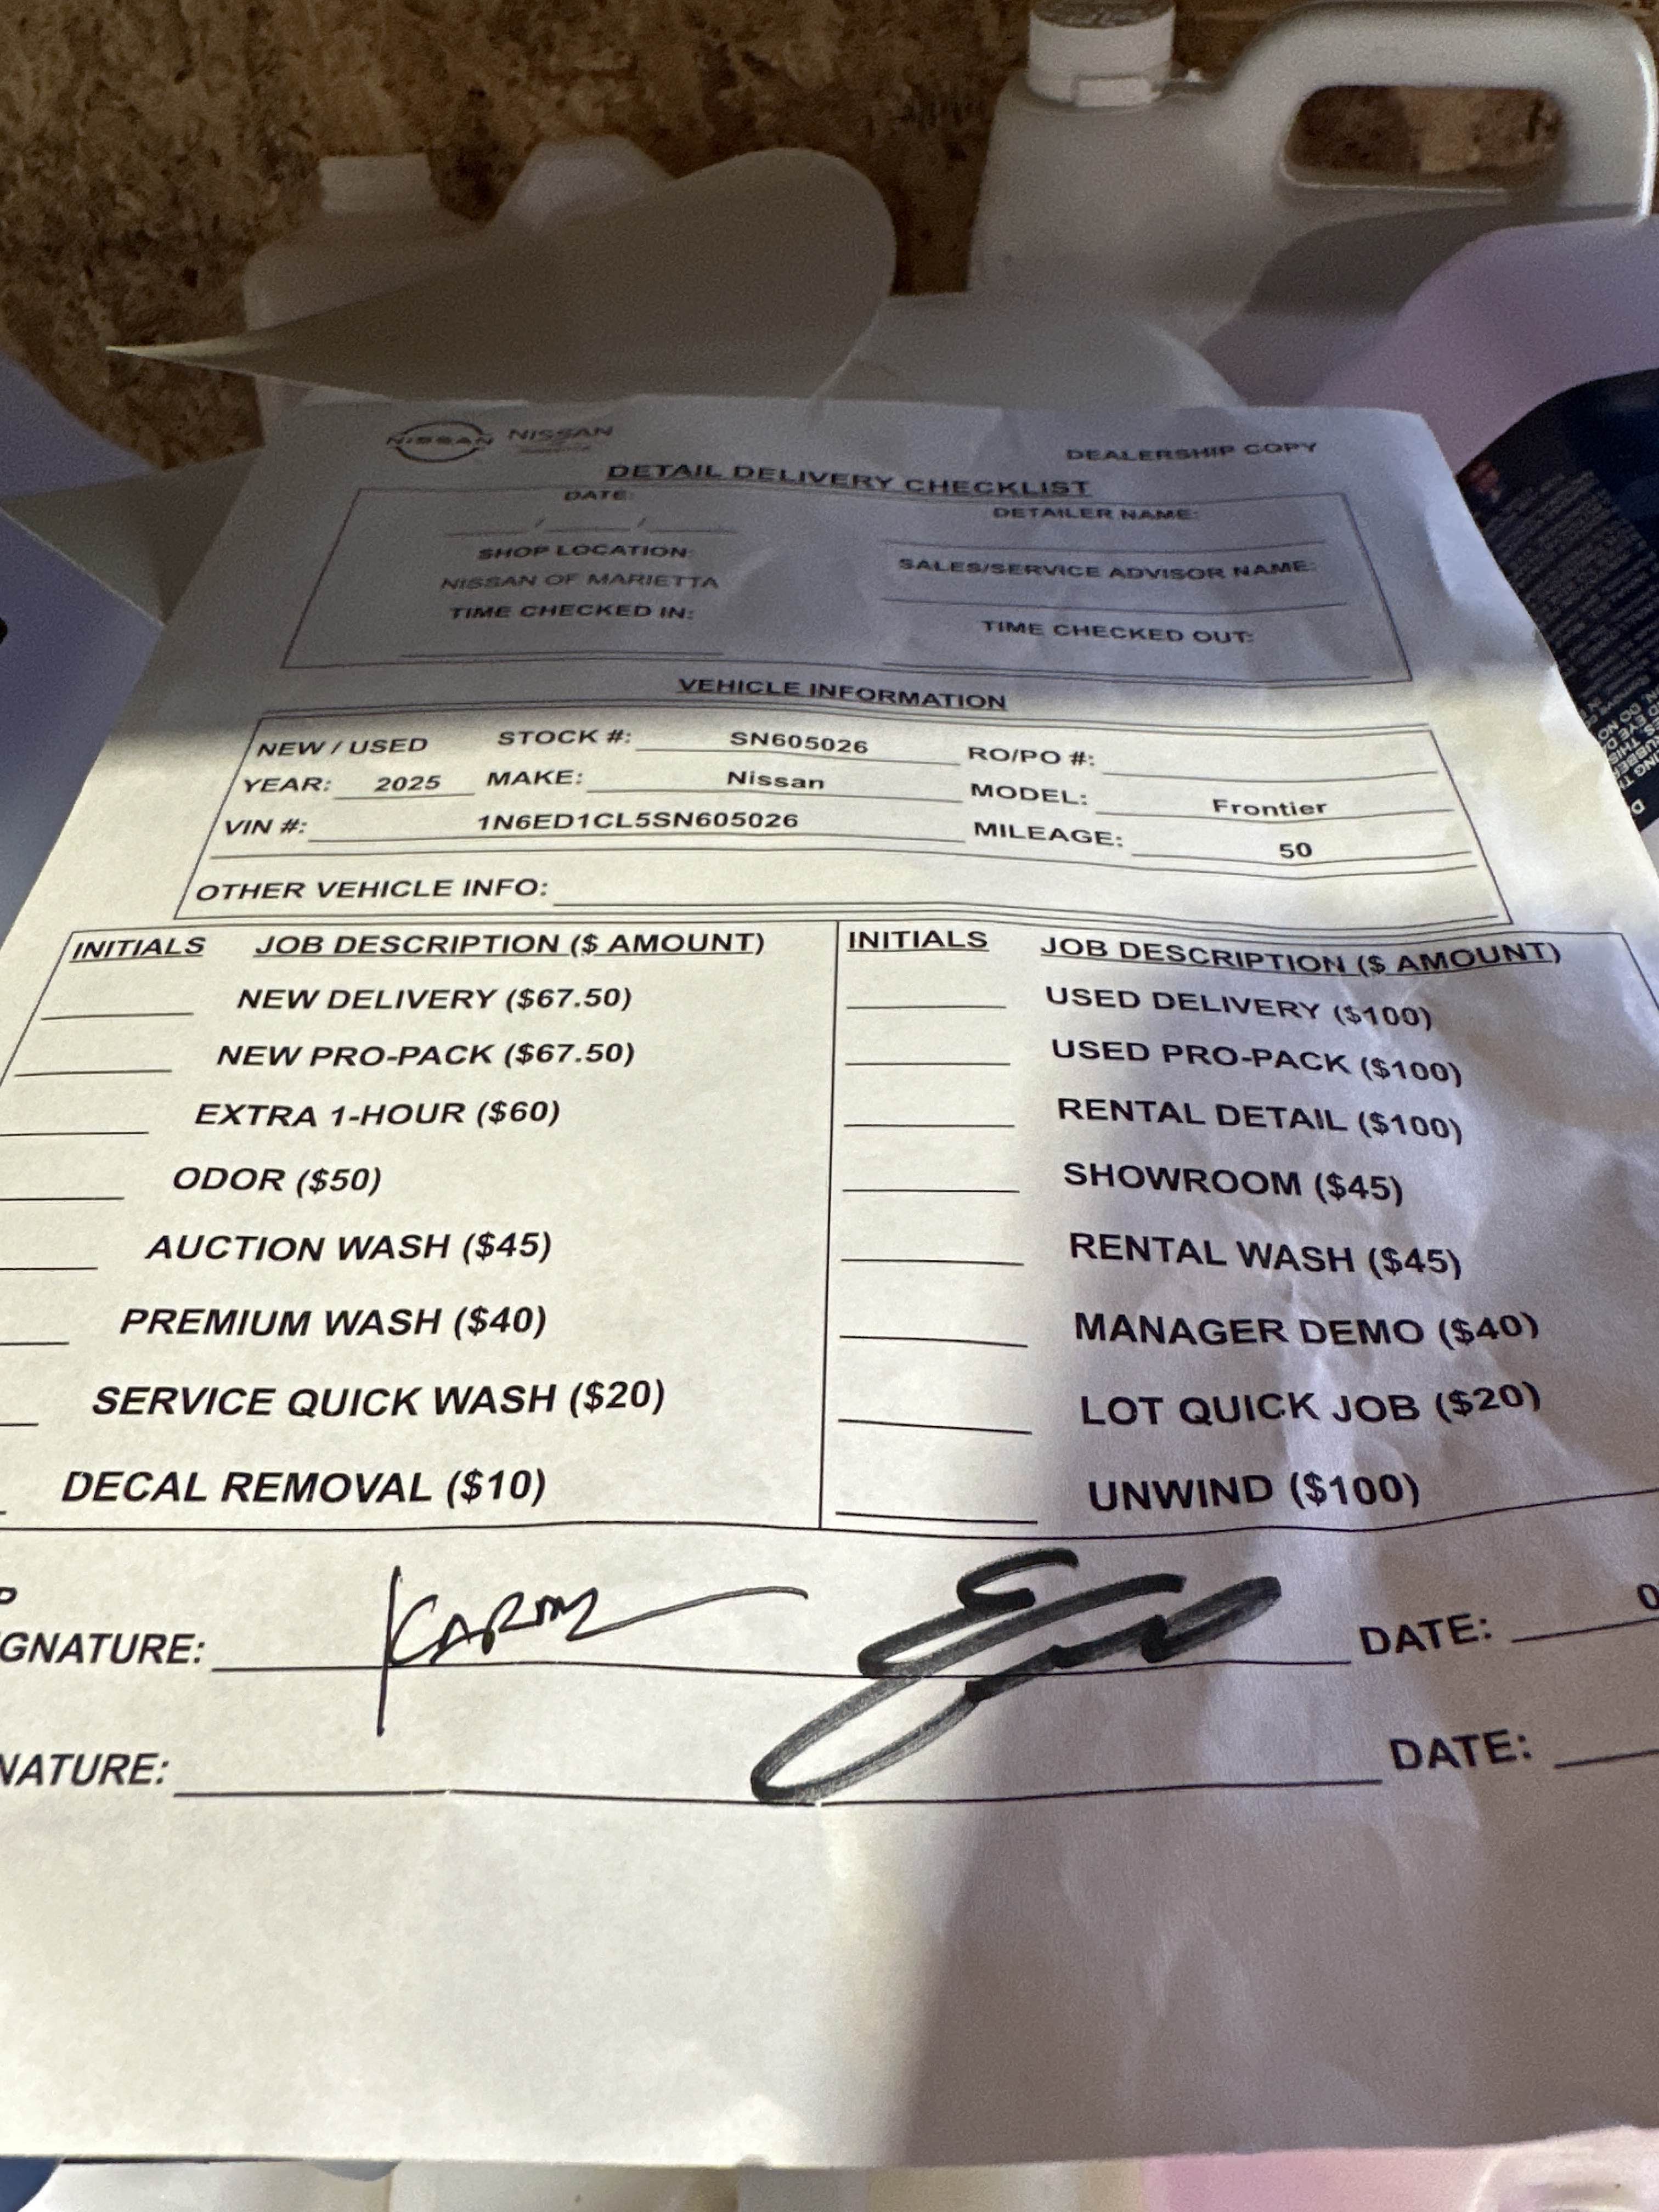 NISSAN NISSAN
DEALERSHIP COPY
DETAIL DELIVERY CHECKLIST
DATE:
/ /
DETAILER NAME:
SHOP LOCATION:
NISSAN OF MARIETTA
SALES/SERVICE ADVISOR NAME:
TIME CHECKED IN:
TIME CHECKED OUT:
VEHICLE INFORMATION
NEW / USED STOCK #: SN605026 RO/PO #:
YEAR: 2025 MAKE: Nissan MODEL: Frontier
VIN #: 1N6ED1CL5SN605026 MILEAGE: 50
OTHER VEHICLE INFO:
INITIALS JOB DESCRIPTION ($ AMOUNT) INITIALS JOB DESCRIPTION ($ AMOUNT)
NEW DELIVERY ($67.50) USED DELIVERY ($100)
NEW PRO-PACK ($67.50) USED PRO-PACK ($100)
EXTRA 1-HOUR ($60) RENTAL DETAIL ($100)
ODOR ($50) SHOWROOM ($45)
AUCTION WASH ($45) RENTAL WASH ($45)
PREMIUM WASH ($40) MANAGER DEMO ($40)
SERVICE QUICK WASH ($20) LOT QUICK JOB ($20)
DECAL REMOVAL ($10) UNWIND ($100)
P
GNATURE: DATE: 0
NATURE: DATE: